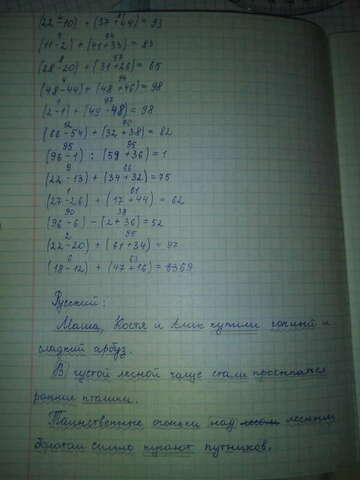 (22-10) + (37+44) = 93
(11-2) + (41+33) = 83
(28-20) + (31+26) = 65
(48-44) + (48+46) = 98
(2-1) + (49-48) = 98
(66-54) + (32+38) = 82
(96-1) : (59+36) = 1
(22-13) + (34+32) = 75
(27-26) + (17+44) = 62
(96-6) - (2+36) = 52
(22-20) + (61+34) = 97
(18-12) + (47+16) = 69
Русский:
Маша, Костя и купили и
сладкий арбуз.
В густой лесной чаще стали просыпатся
ранние пташки.
Таинственные огоньки над лесным
болотом сильно пугают путников.